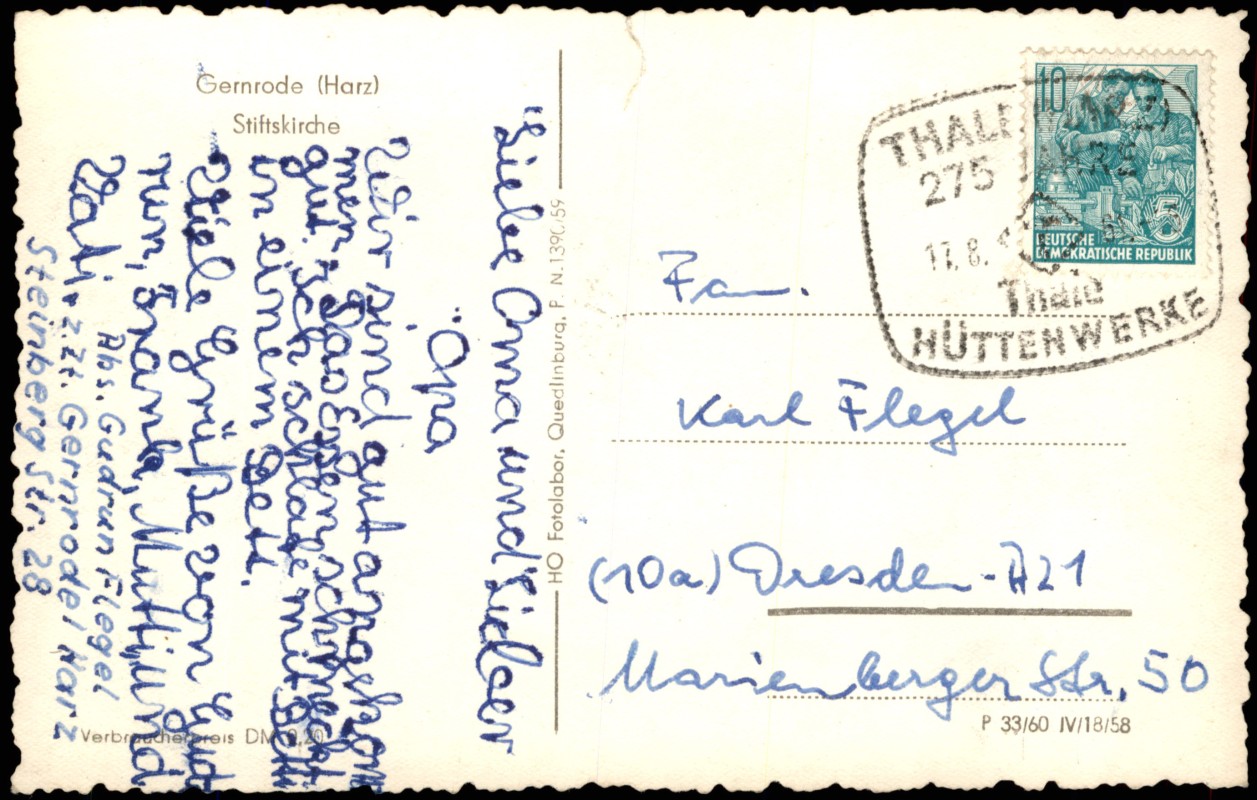 Gernrode (Harz)
Stiftskirche
Liebe Oma und Lieber
Opa
Wir sind gut angekom
men. Das Essen schmeckt
gut. Ich schlafe mit Betti
in einem Bett.
Viele Grüße von Gud
run, Frank, Mutti und
Vati.
Abs. Gudrun Flegel
z. Zt. Gernrode / Harz
Steinberg Str. 28
Verbraucherpreis DM 0,20
HO Fotolabor, Quedlinburg, P. N. 1390/59
10
DEUTSCHE
DEMOKRATISCHE REPUBLIK
5
THALE
275
17. 8.
Thale
HÜTTENWERKE
Fam.
Karl Flegel
(10a) Dresden - A21
Marienberger Str. 50
P 33/60 IV/18/58